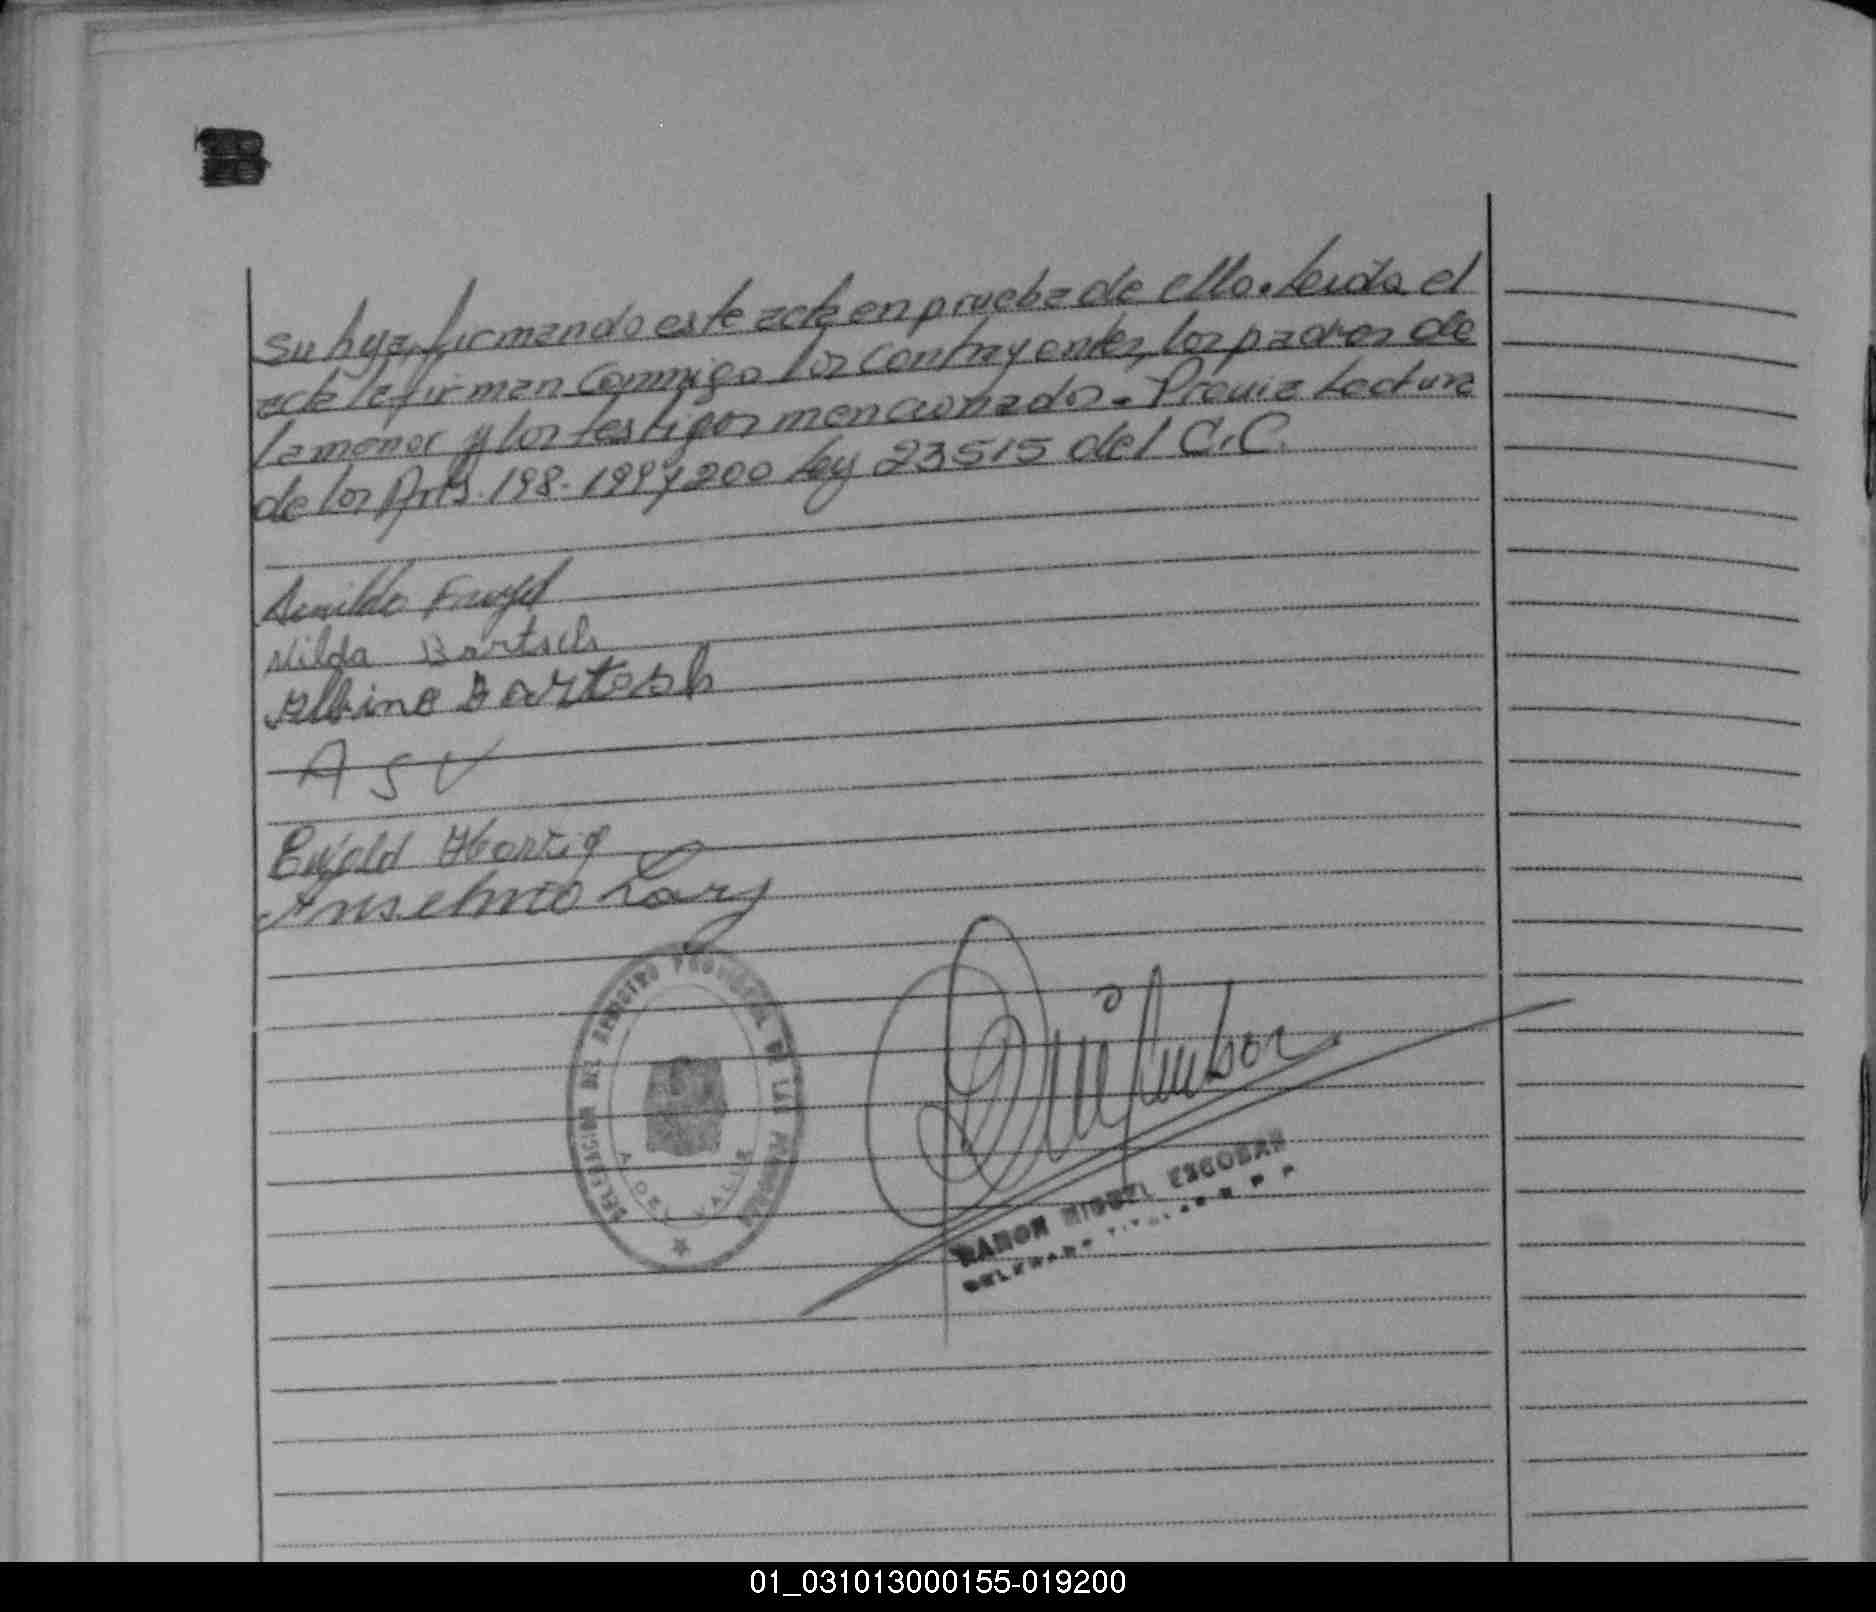 su hija, firmando este acta en prueba de ello. Leida el
acta la firman conmigo los contrayentes, los padres de
la menor y los testigos mencionados. Previa Lectura
de los Arts. 198-199 y 200 Ley 23515 del C.C.
Nilda Bartsch
Albino Bartosh
A S V
Ewald Hartig
Anselmo
DELEGACION DEL REGISTRO PROVINCIAL DE LAS PERSONAS
A. DEL VALLE
RAMON MIGUEL ESCOBAR
01_031013000155-019200